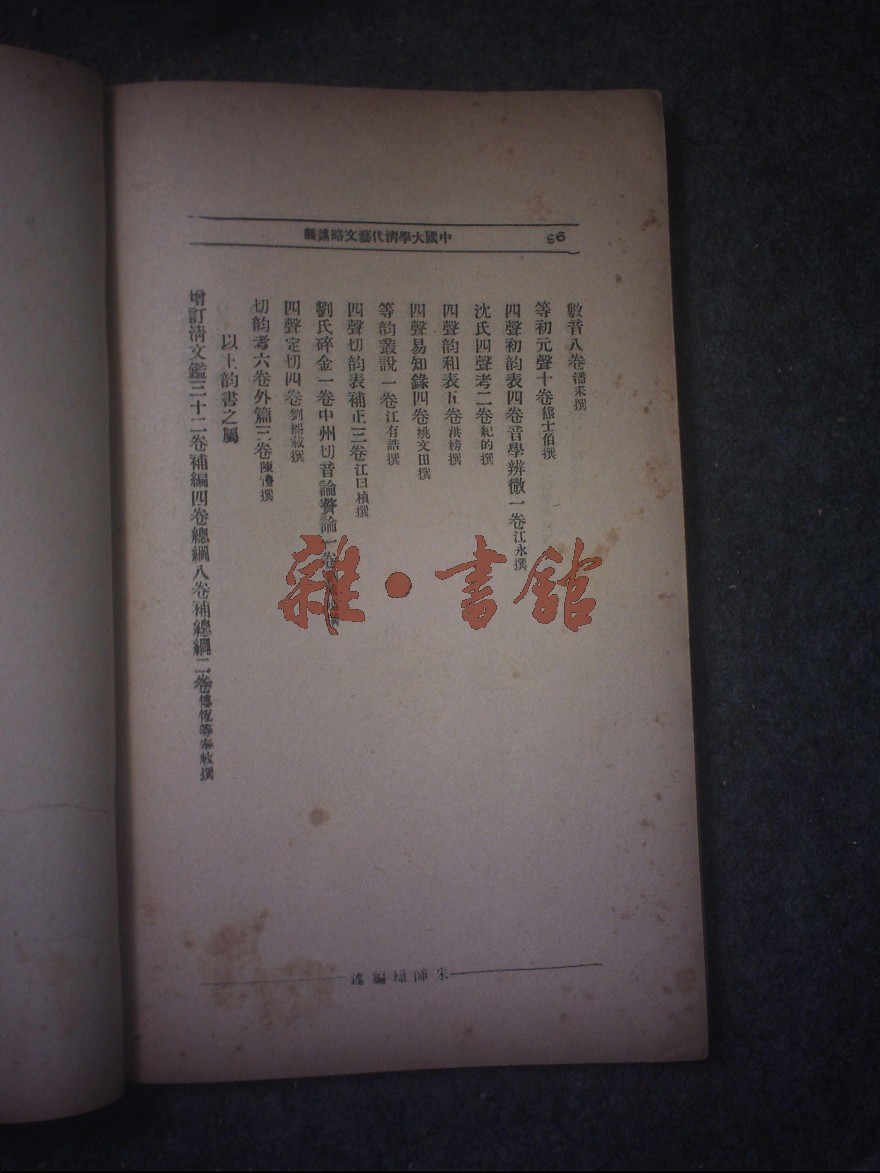 中國大學清代藝文略講義
96
數音八卷潘耒撰
等初元聲十卷熊士伯撰
四聲初韵表四卷音學辨微一卷江永撰
沈氏四聲考二卷紀的撰
四聲韵和表五卷洪榜撰
四聲易知錄四卷姚文田撰
等韵叢說一卷江有誥撰
四聲切韵表補正三卷江曰楨撰
劉氏碎金一卷中州切音論贅論一卷
四聲定切四卷劉熙載撰
切韵考六卷外篇三卷陳澧撰
以上韵書之屬
增訂清文鑑三十二卷補編四卷總綱八卷補總綱二卷傅恆等奉敕撰
朱師轍編述
雜·書館